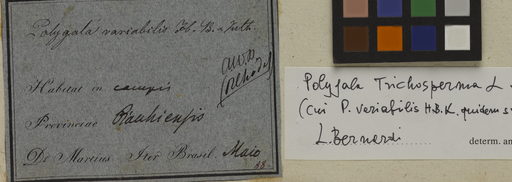 Polygala variabilis H. B. & Kth.
Habitat in campis
Provinciae Bauhiensis
De Martius Iter Brasil. Maio
Polygala Trichosperma L.
(cui P. variabilis H.B.K. quidem s
L. Bernardi
determ. an